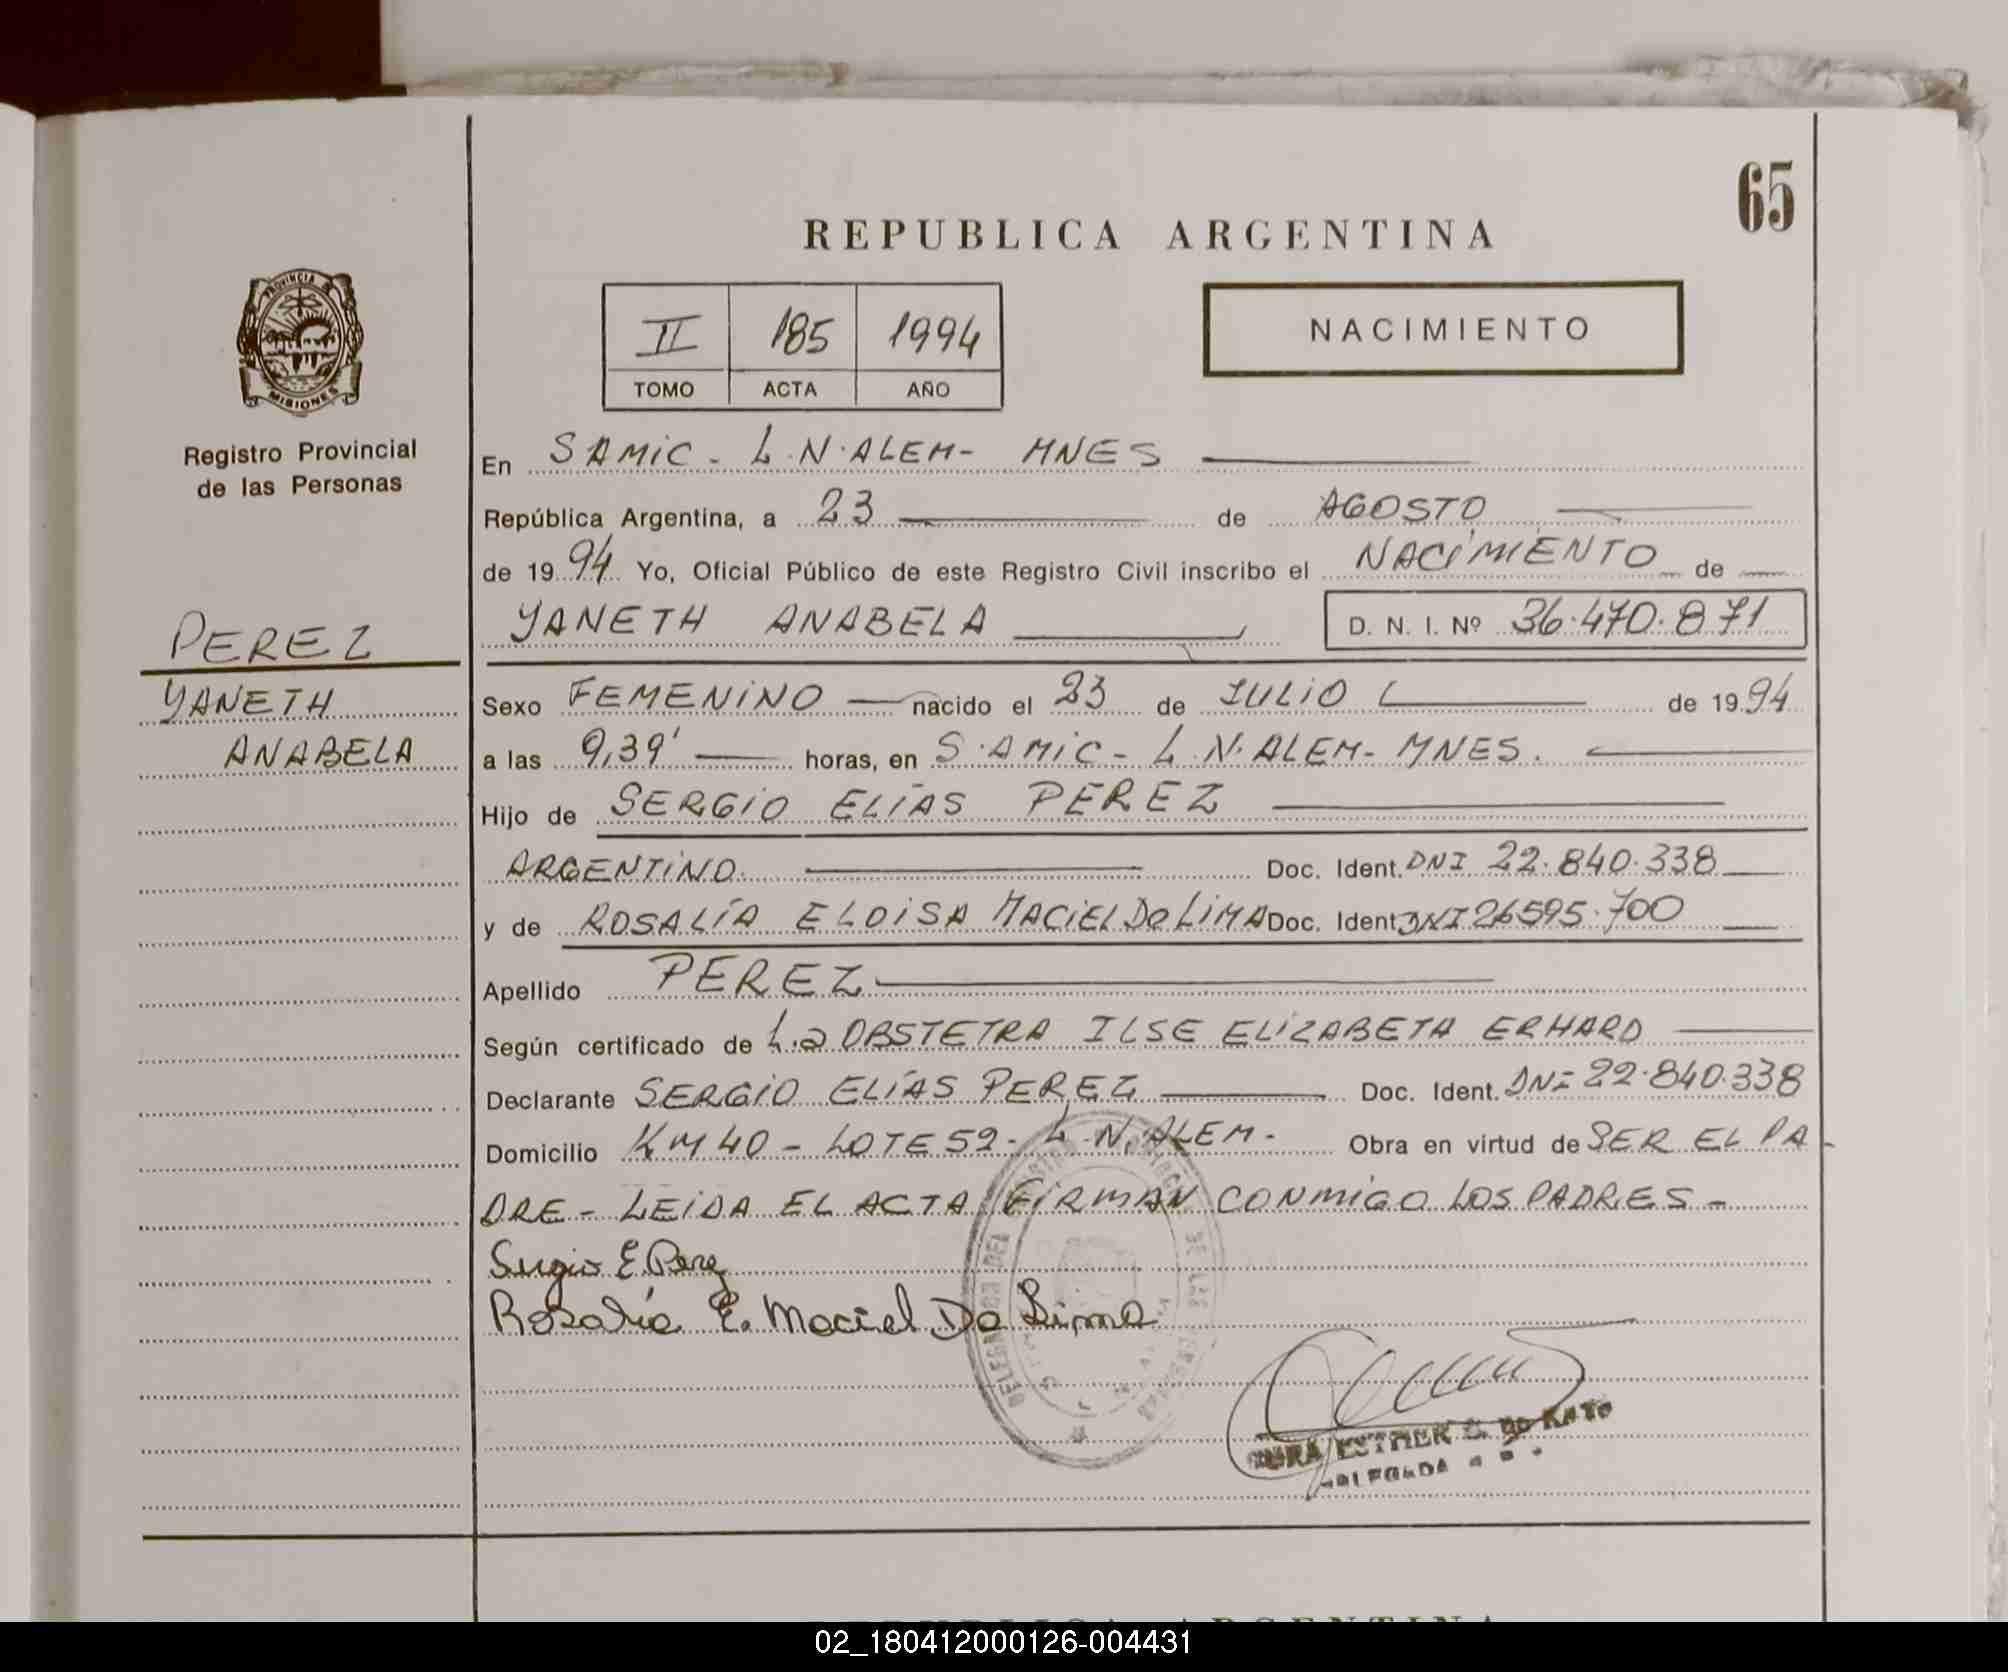 65
REPUBLICA ARGENTINA
PROVINCIA DE
MISIONES
II 185 1994
TOMO ACTA AÑO
NACIMIENTO
Registro Provincial
de las Personas
En SAMIC - L.N.ALEM- MNES
República Argentina, a 23 de AGOSTO
de 1994 Yo, Oficial Público de este Registro Civil inscribo el NACIMIENTO de
YANETH ANABELA D. N. I. Nº 36.470.871
PEREZ
YANETH
ANABELA
Sexo FEMENINO nacido el 23 de JULIO de 1994
a las 9,39' horas, en S.AMIC - L.N.ALEM- MNES.
Hijo de SERGIO ELÍAS PEREZ
ARGENTINO. Doc. Ident. DNI 22.840.338
y de ROSALÍA ELOISA MACIEL Da LIMA Doc. Ident. DNI 26595.700
Apellido PEREZ
Según certificado de La OBSTETRA ILSE ELIZABETA ERHARD
Declarante SERGIO ELÍAS PEREZ Doc. Ident. DNI 22.840.338
Domicilio KM 40 - LOTE 52- L.N.ALEM- Obra en virtud de SER EL PA-
DRE - LEIDA EL ACTA FIRMAN CONMIGO LOS PADRES -
Sergio E. Perez
Rosalía E. Maciel Da Lima
DEL DE LAS
ESTHER
REPUBLICA ARGENTINA
02_180412000126-004431